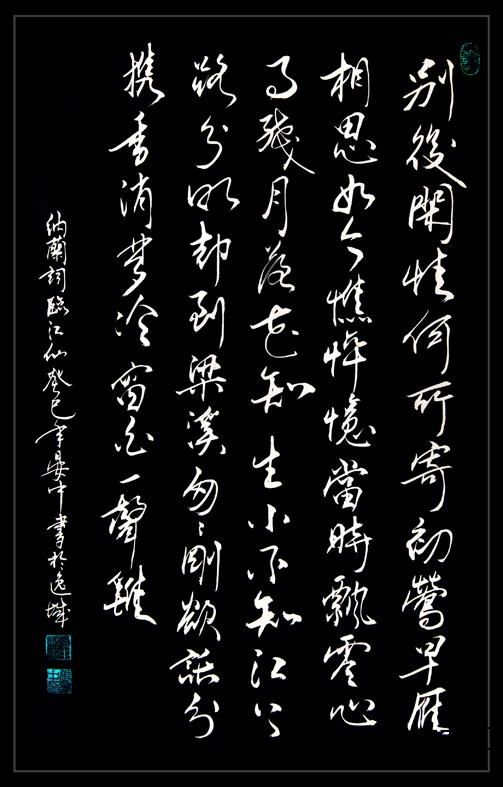 别後閑情何所寄初鶯早雁
相思如今憔悴憶當時飄零心
事残月落花知生小不知江上
路分明却到梁溪匆〻剛欲話分
携香消夢冷窗白一聲雞
納蘭詞臨江仙癸巳年晏中書於逸城